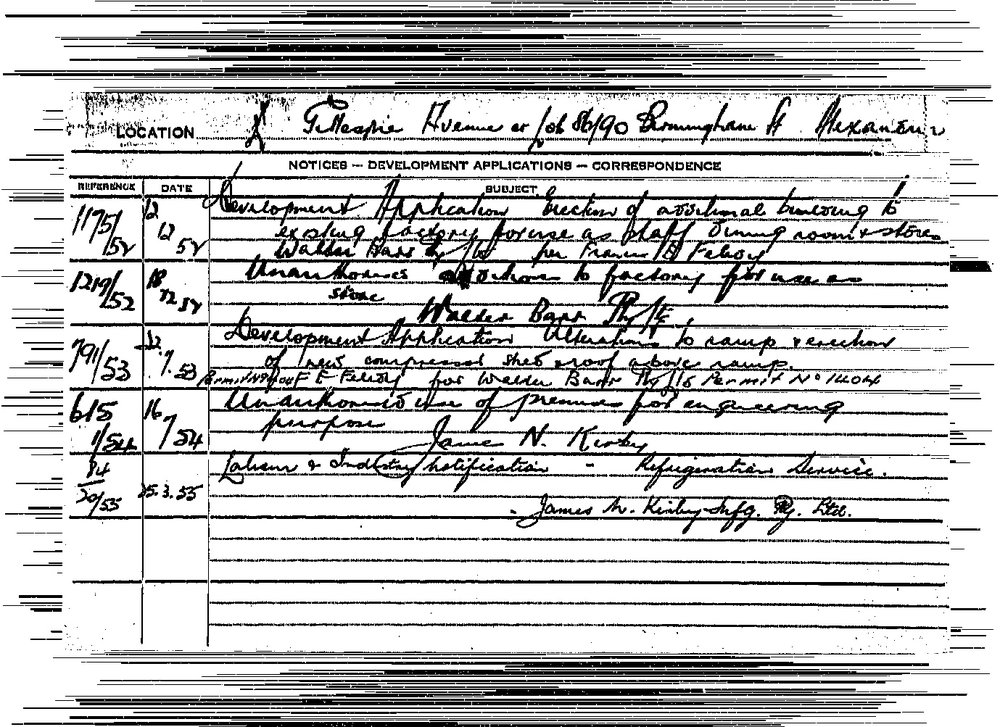 LOCATION Gillespie Avenue cr 86/90 Birmingham St Alexandria
NOTICES — DEVELOPMENT APPLICATIONS — CORRESPONDENCE
REFERENCE DATE SUBJECT
1175/52 12 12 52 Development Application Erection of additional building to
existing factory for use as staff dining room & stores
Walder Barr Pty Ltd per Francis E Feledy
1219/52 18 12 52 Unauthorised additions to factory for use as
store
Walder Barr Pty Ltd
791/53 .7.53 Development Application Alterations to ramp & erection
of new compressor shed & roof above ramp.
F E Feledy for Walder Barr Pty Ltd Permit No 1404
615 1/54 16 7/54 Unauthorised use of premises for engineering
purposes James N. Kirby
84 20/55 25.3.55 Labour & Industry notification - Refrigeration Service.
- James N. Kirby Mfg. Pty. Ltd.